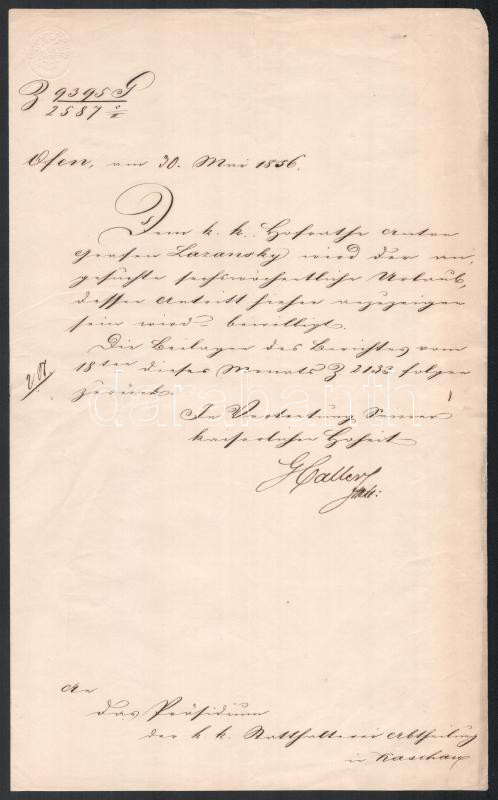 Z 9395 G
2587
Ofen, am 30. Mai 1856.
Dem k. k. Hofrathe Anton
Grafen Lazansky wird der an-
gesuchte sechswöchentliche Urlaub,
dessen Antritt hieher anzuzeigen
sein wird bewilligt.
Die Beilagen des Berichtes vom
18ten dieses Monats Z 2133 folgen
zurück.
In Vertretung Seiner
kaiserlichen Hoheit
Haller
An
das Präsidium
der k k. Statthalterei Abtheilung
in Kaschau
darabanth